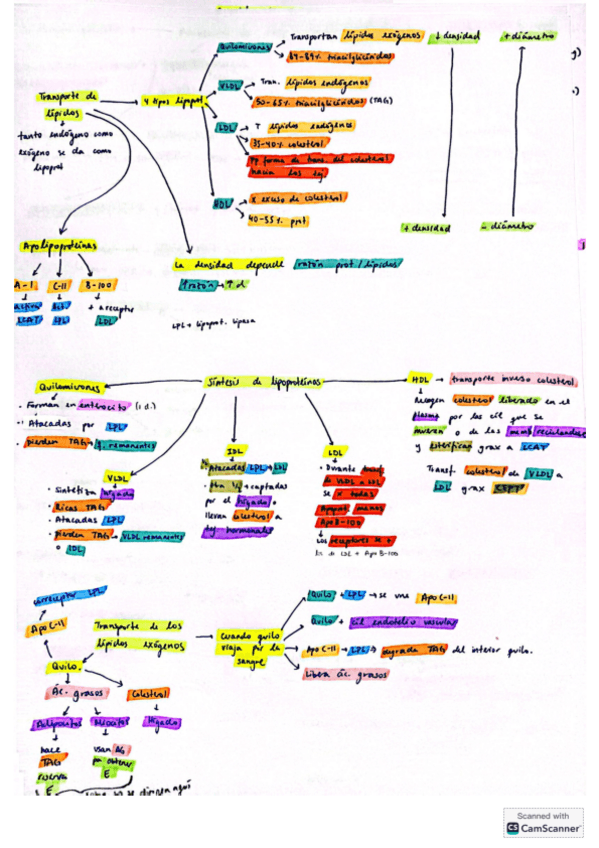 Transportan lípidos exógenos
Quilomicrones
84-89% triacilglicéridos
↓ densidad
+ diámetro
VLDL
Tran. lípidos endógenos
50-65% triacilglicéridos (TAG)
Transporte de
lípidos
4 tipos lipoprot
tanto endógeno como
exógeno se da como
lipoprot
LDL
T lípidos endógenos
35-40% colesterol
pp forma de trans. del colesterol
hacia los tej
HDL
x exceso de colesterol
40-55% prot.
+ densidad
- diámetro
Apolipoproteínas
A-I
C-II
B-100
activa
LCAT
LPL
+ a receptor
LDL
La densidad depende razón prot/lípidos
↑razón → ↑ d.
LPL = lipoprot. lipasa
Síntesis de lipoproteínas
Quilomicrones
· Forman en enterocito (i.d.)
· Atacadas por LPL
· pierden TAG → q. remanentes
VLDL
· Sintetiza hígado
· Ricas TAG
· Atacadas LPL
· pierden TAG → VLDL remanentes
o IDL
IDL
· Atacadas LPL → LDL
captadas
por el hígado o
llevan colesterol a
tej hormonales
LDL
· Durante
de VLDL a LDL
se x todas
Apoprot menos
Apo B-100
Los receptores se +
de LDL + Apo B-100
HDL → transporte inverso colesterol
Recogen colesterol liberado en el
plasma por las cél que se
mueran o de las memb recicladas
y esterifican grax a LCAT
Transf. colesterol de VLDL a
LDL grax CETP
correceptor LPL
Apo C-II
Transporte de los
lípidos exógenos
Quilo.
Ác. grasos
Colesterol
Adipocitos
Miocitos
Hígado
hace
TAG
reserva
E
usan AG
pa obtener
E
Cuando quilo
viaja por la
sangre
Quilo + LPL → se une Apo C-II
Quilo + cél endotelio vascular
Apo C-II → LPL → degrada TAG del interior quilo.
Libera ác. grasos
Scanned with
CS CamScanner